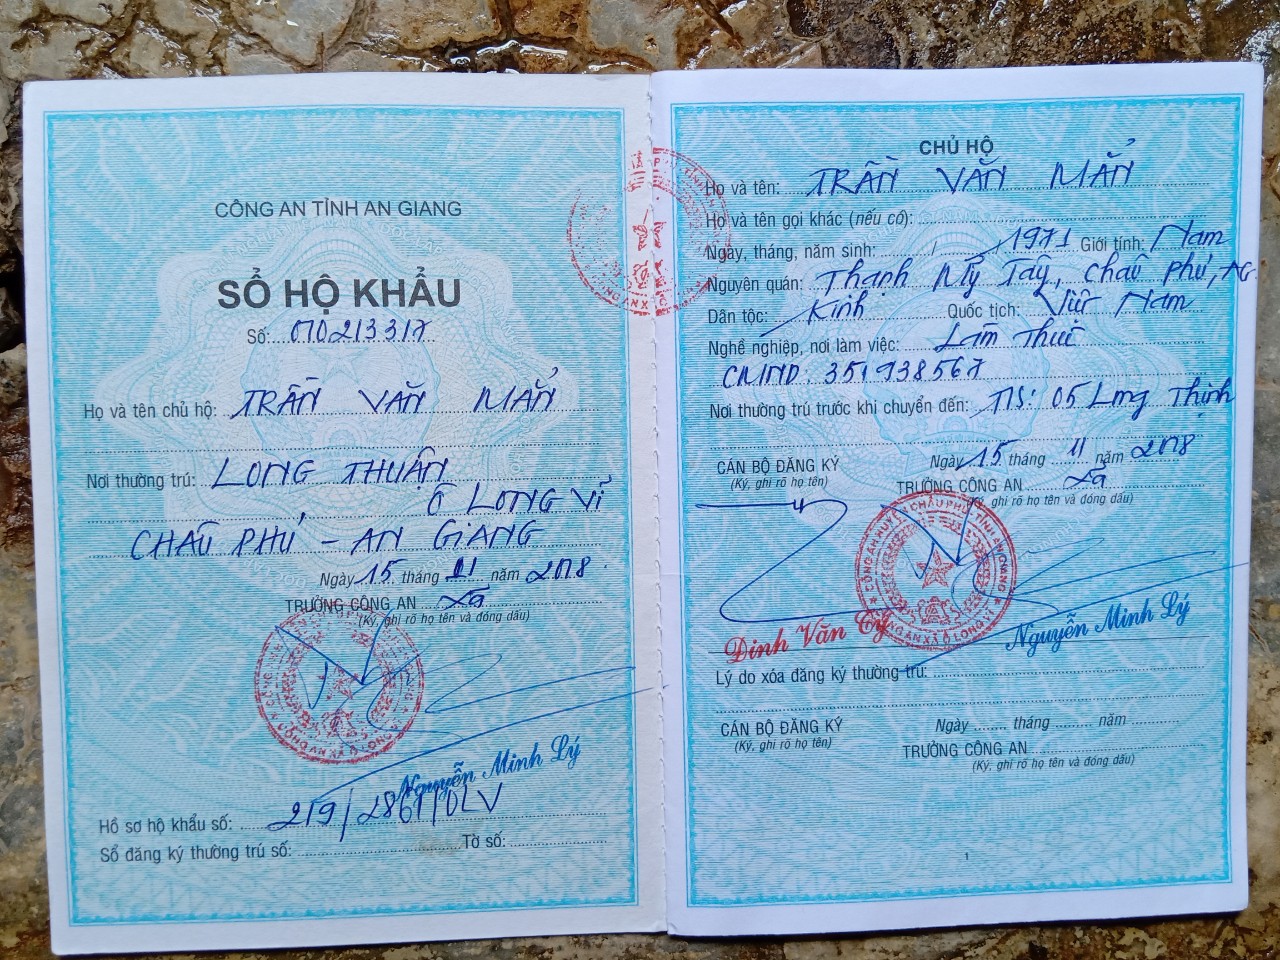 CÔNG AN TỈNH AN GIANG
SỔ HỘ KHẨU
Số: 070213317
Họ và tên chủ hộ: TRẦN VĂN MẲN
Nơi thường trú: LONG THUẬN
Ô LONG VĨ
CHÂU PHÚ - AN GIANG
Ngày 15 tháng 11 năm 2018.
TRƯỞNG CÔNG AN xã
(Ký, ghi rõ họ tên và đóng dấu)
Nguyễn Minh Lý
Hồ sơ hộ khẩu số: 219/2861/OLV
Sổ đăng ký thường trú số: Tờ số:
CHỦ HỘ
Họ và tên: TRẦN VĂN MẲN
Họ và tên gọi khác (nếu có):
Ngày, tháng, năm sinh: / / 1971 Giới tính: Nam
Nguyên quán: Thạnh Mỹ Tây, Châu Phú, AG
Dân tộc: Kinh Quốc tịch: Việt Nam
Nghề nghiệp, nơi làm việc: Làm Thuê
CMND. 351938567
Nơi thường trú trước khi chuyển đến: 05 Long Thịnh
CÁN BỘ ĐĂNG KÝ
(Ký, ghi rõ họ tên)
Ngày 15 tháng 11 năm 2018
TRƯỞNG CÔNG AN xã
(Ký, ghi rõ họ tên và đóng dấu)
Đinh Văn Tý
Nguyễn Minh Lý
Lý do xóa đăng ký thường trú:
CÁN BỘ ĐĂNG KÝ
(Ký, ghi rõ họ tên)
Ngày tháng năm
TRƯỞNG CÔNG AN
(Ký, ghi rõ họ tên và đóng dấu)
1